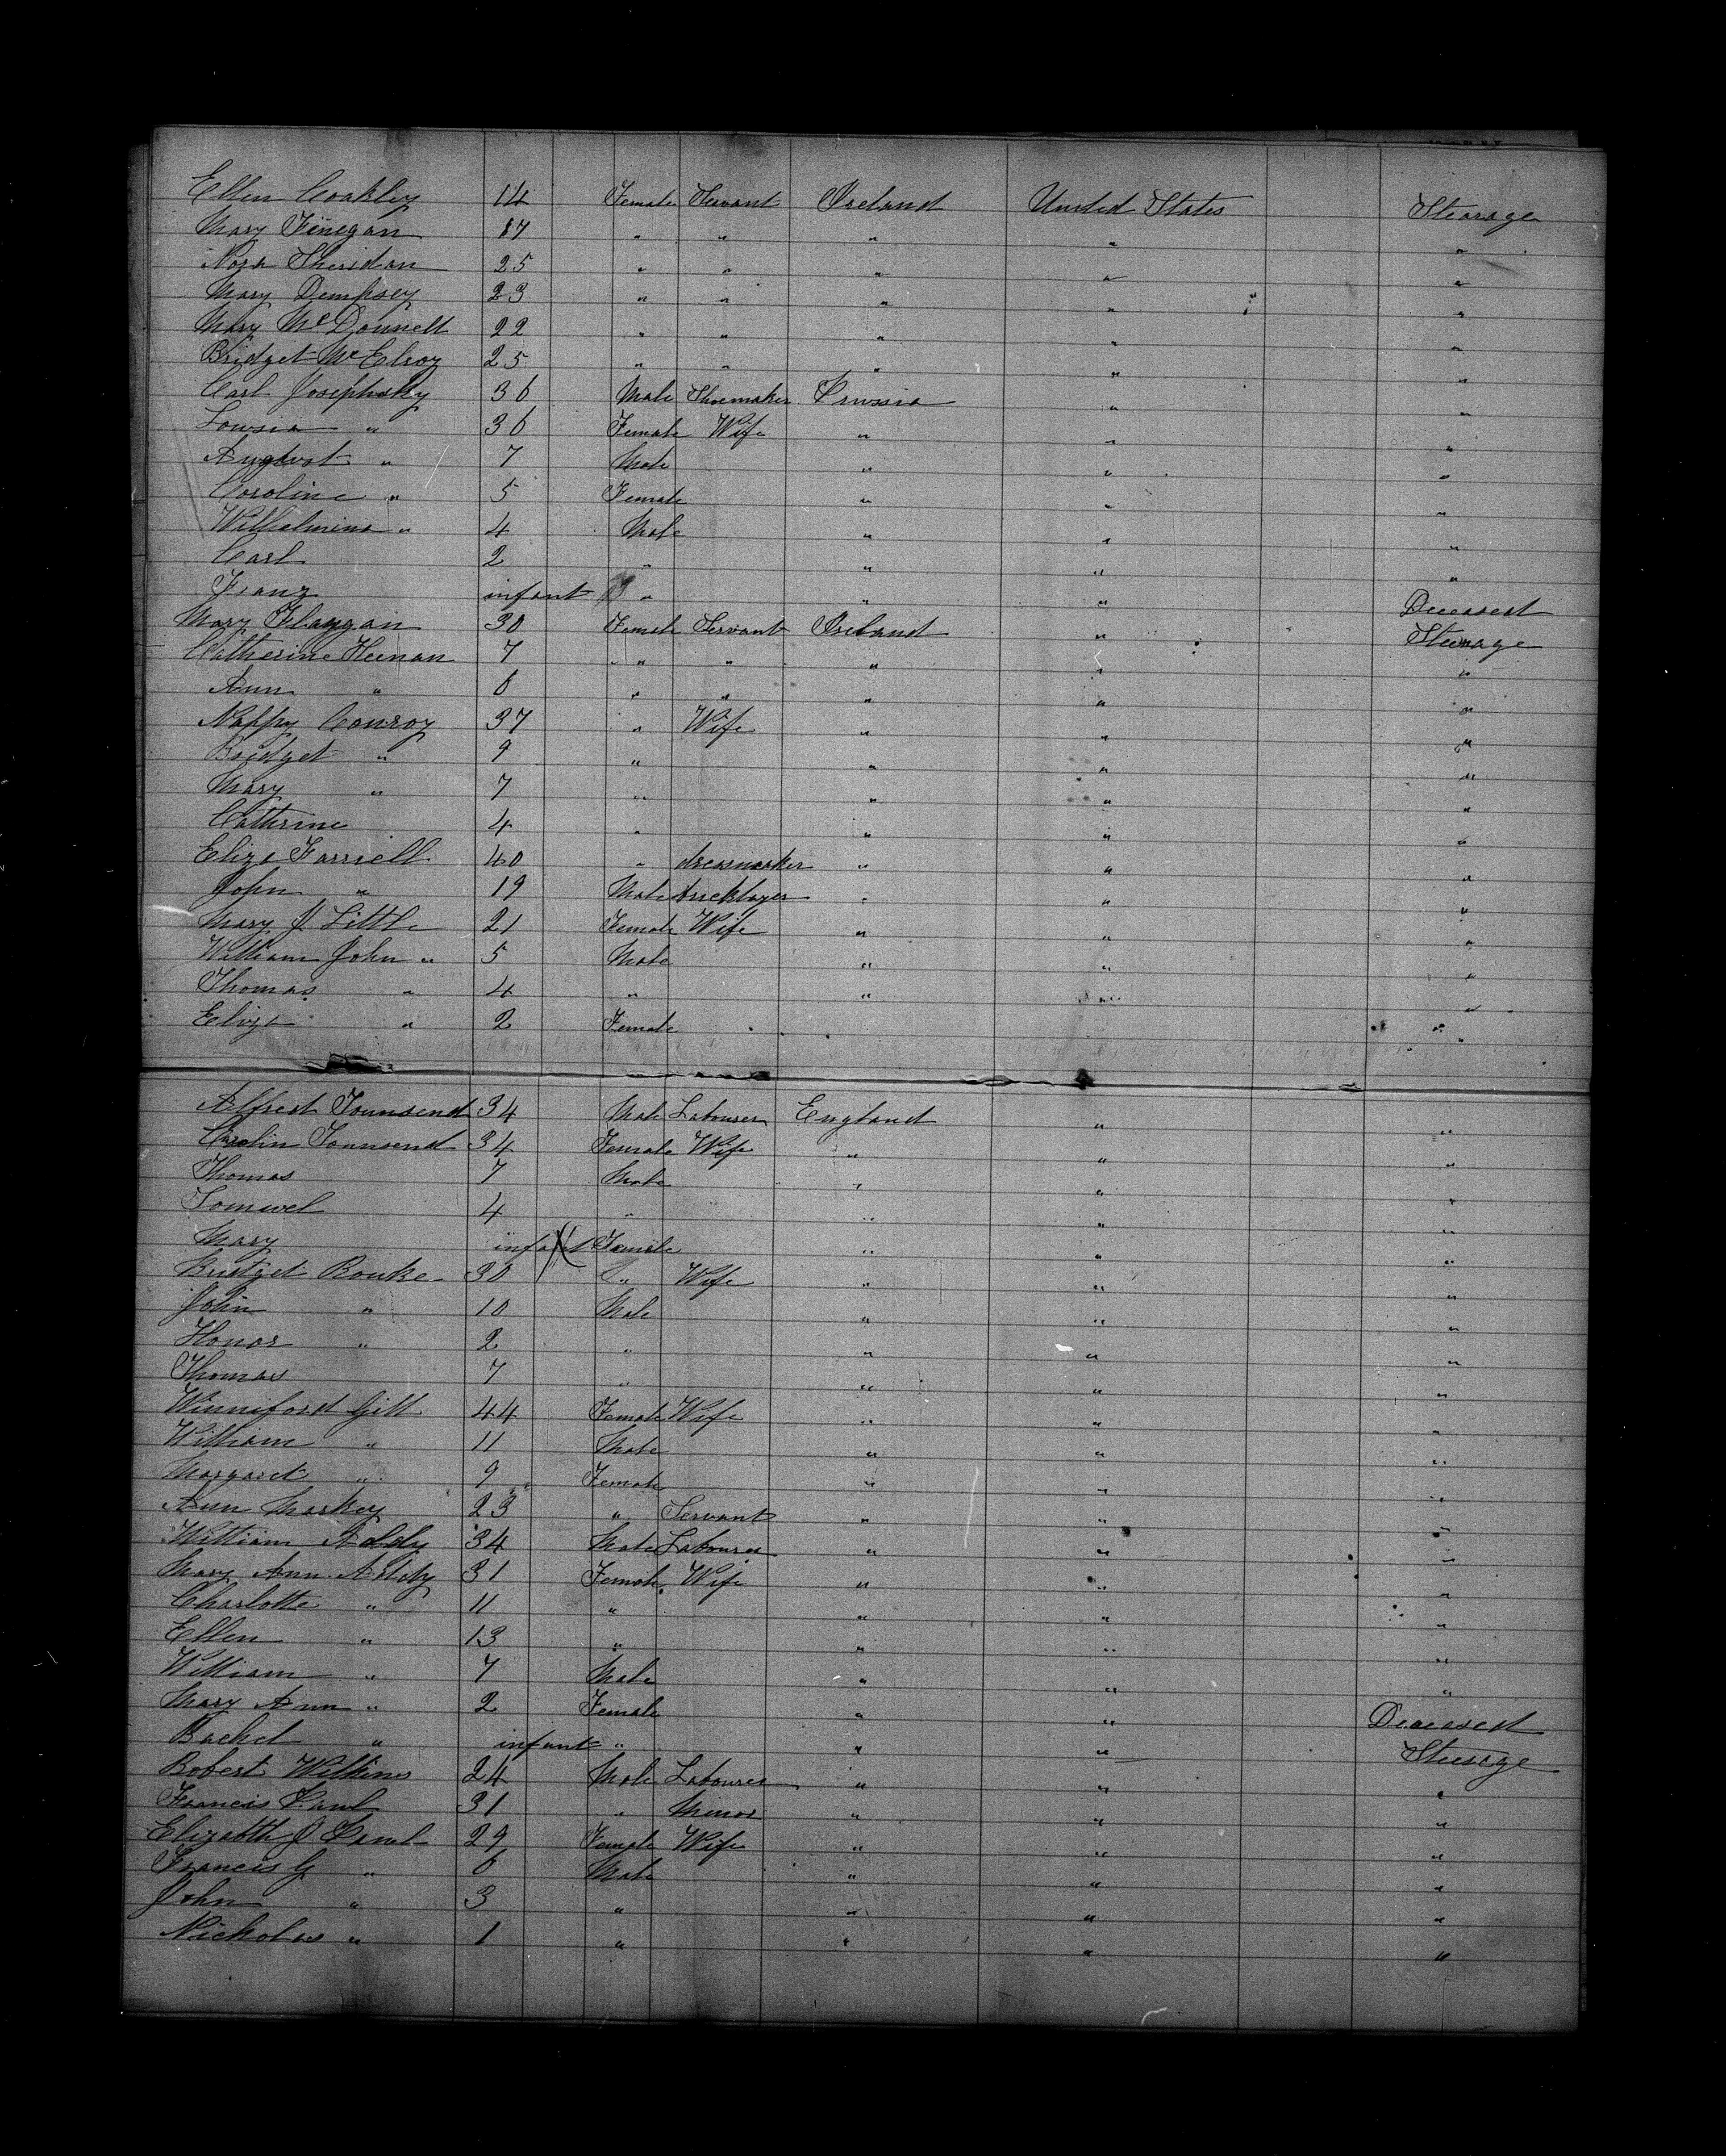 Ellen Coakley 14 Female Servant Ireland United States Stearage
Mary Finegan 17 " " " " "
Noza Sheridan 25 " " " " "
Mary Dempsey 23 " " " " "
Mary McDonnell 22 " " " " "
Bridget McElroy 25 " " " " "
Carl Josephsky 36 Male Shoemaker Prussia " "
Lowsia " 36 Female Wife " " "
August " 7 Male " " "
Caroline " 5 Female " " "
Wilhelmina " 4 Male " " "
Carl 2 " " " "
Franz infant " " " Deceased
Mary Flaygan 30 Female Servant Ireland " Steerage
Catherine Heenan 7 " " " " "
Ann " 6 " " " " "
Nappy Conroy 37 " Wife " " "
Bridget " 9 " " " "
Mary " 7 " " " "
Cathrine 4 " " " "
Eliza Farriell 40 " dressmaker " " "
John " 19 Male bricklayer " " "
Mary J Little 21 Female Wife " " "
William John " 5 Male " " "
Thomas " 4 " " " "
Eliza " 2 Female " "
Alfred Tounsend 34 Male Labourer England " "
Carolin Tounsend 34 Female Wife " " "
Thomas 7 Male " " "
Somwel 4 " " " "
Mary infant Female " " "
Bridget Bouke 30 " Wife " " "
John " 10 Male " " "
Honor " 2 " " " "
Thomas 7 " " " "
Winniford Gill 44 Female Wife " " "
William " 11 Male " " "
Margaret " 9 Female " " "
Ann Markey 23 " Servant " " "
William Addy 34 Male Labourer " " "
Mary Ann Addy 31 Female Wife " " "
Charlotte " 11 " " " "
Ellen " 13 " " " "
William " 7 Male " " "
Mary Ann " 2 Female " " Deceased
Rachel " infant " " " Steerage
Robert Wilkins 24 Male Labourer " " "
Francis Paul 31 " Minor " " "
Elizabth J Paul 29 Female Wife " " "
Francis G " 6 Male " " "
John " 3 " " " "
Nicholas " 1 " " " "